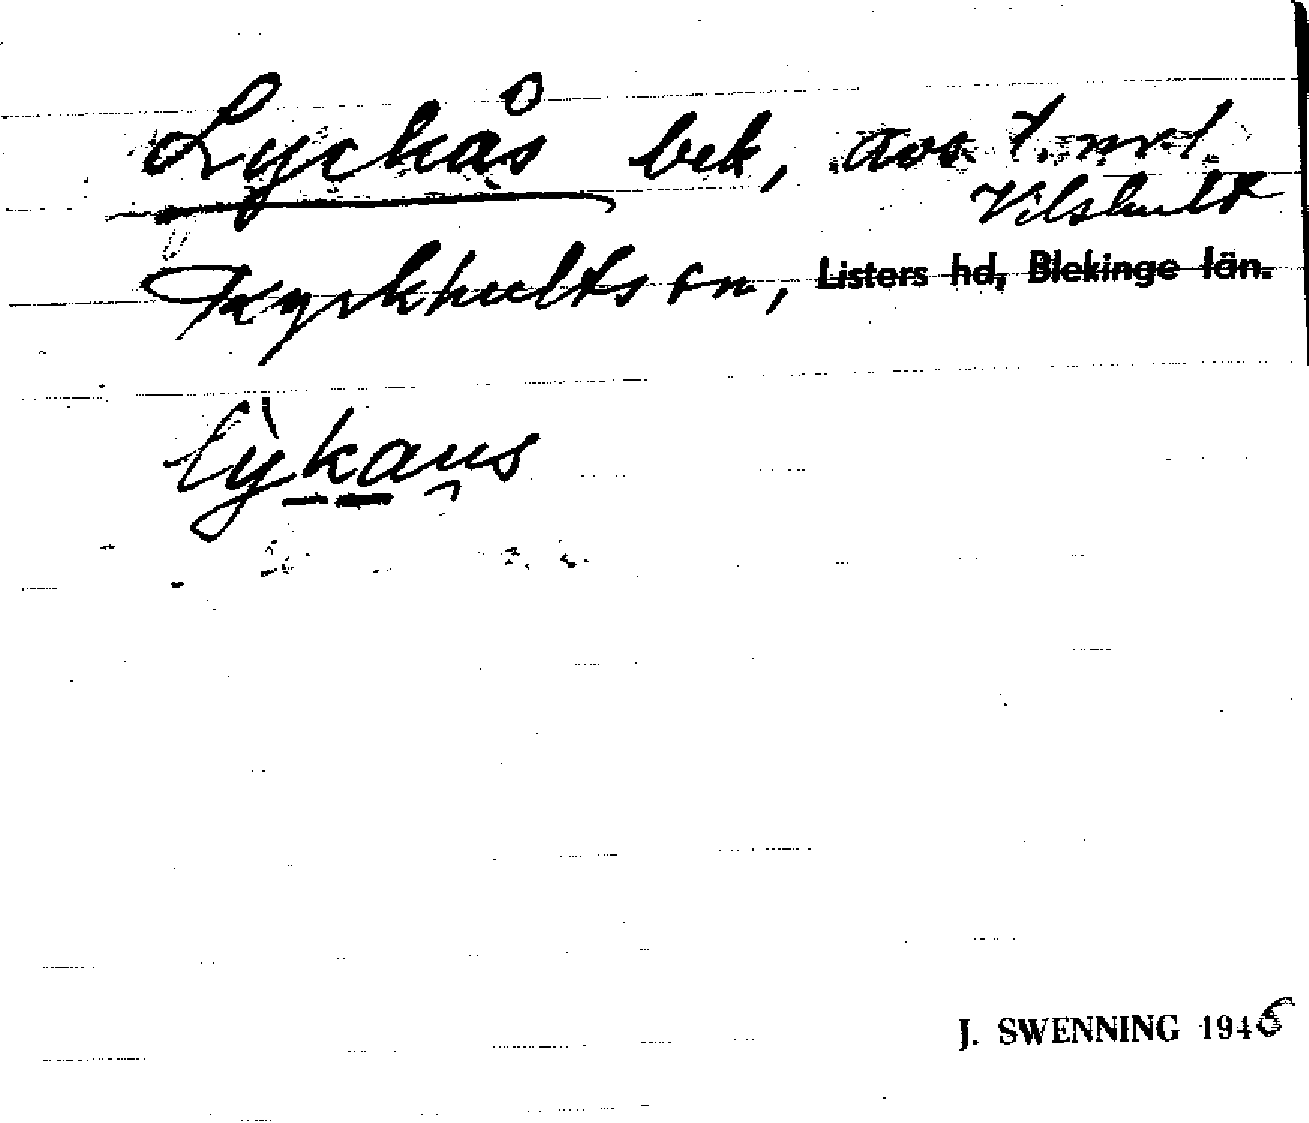 Lyckås bek, avs t. nr 1
Vilshult
Kyrkhults sn, Listers hd, Blekinge län.
lỳkaus
J. SWENNING 1946